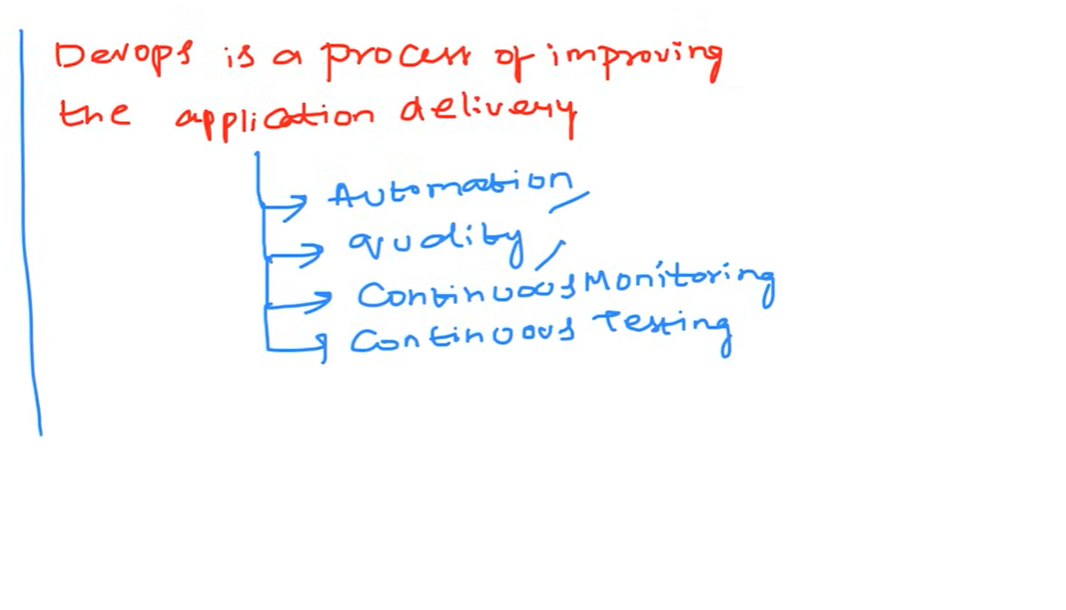 Devops is a process of improving
the application delivery
Automation
quality
Continuous Monitoring
Continuous Testing